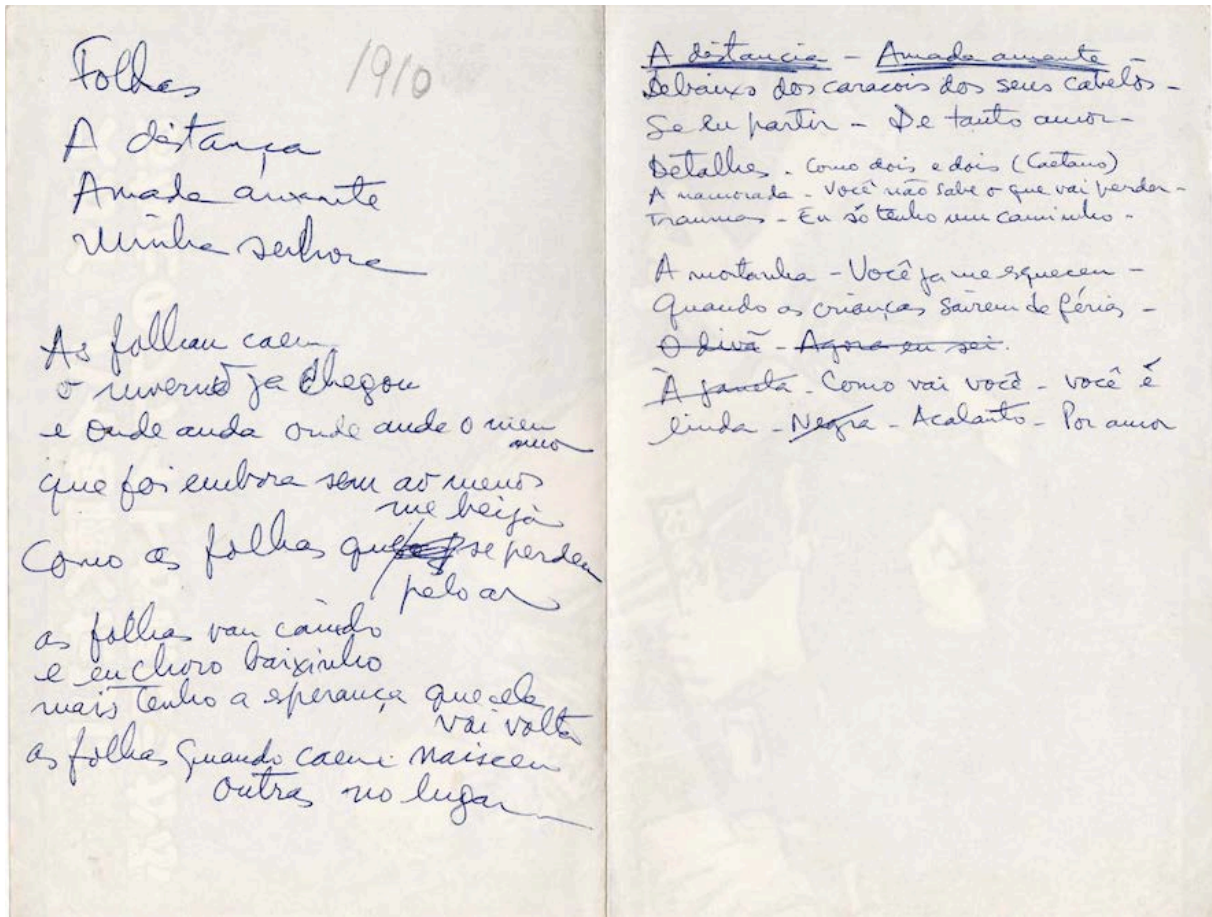 Folhas
1910
A distança
Amada amante
Minha senhora
As folhan caem
o inverno ja chegou
e onde anda onde anda o meu
amor
que foi embora sem ao menos
me beijá
Como as folhas que se perdem
pelo ar
as folhas van caindo
e eu choro baixinho
mais tenho a esperança que ela
vai volta
as folhas quando caem naiscem
outras no lugar
A distancia - Amada amante -
Debaixo dos caracois dos seus cabelos -
Se eu partir - De tanto amor -
Detalhes - Como dois e dois (Caetano)
A namorada - Você não sabe o que vai perder -
Traumas - Eu só tenho um caminho -
A montanha - Você ja me esqueceu -
Quando as crianças sairem de férias -
O divã - Agora eu sei.
À janela - Como vai você - você é
linda - Negra - Acalanto - Por amor